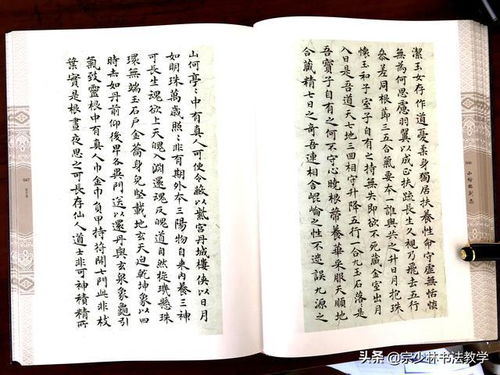 潔玉女存作道憂柔身獨居扶養性命守虛無恬惔
無為何思慮羽翼以成正扶踈長生久視乃飛去五行
參差同根節三五合氣要本一誰與共之升日月抱珠
懷玉和子室子自有之持無失即欲不死藏金室出月
入日是吾道天七地三回相守升降五行一合九玉石落是
吾寶子自有之何不守心曉根蒂養華采服天順地
合藏精七日之奇吾連相舍崐崘之性不迷誤九源之
山何亭〻中有真人可使令蔽以紫宮丹城樓俠以日月
如明珠萬歲照〻非有期外本三陽物自來內養三神
可長生魂欲上天魄入淵還魂反魄道自然旋璣懸珠
環無端玉石戶金籥身完堅載地玄天迫乾坤象以四
時赤如丹前仰後卑各異門送以還丹與玄泉象龜引
氣致靈根中有真人巾金巾負甲持符開七門此非枝
葉實是根晝夜思之可長存仙人道士非可神積精所
047
头条 @宗少林书法教学